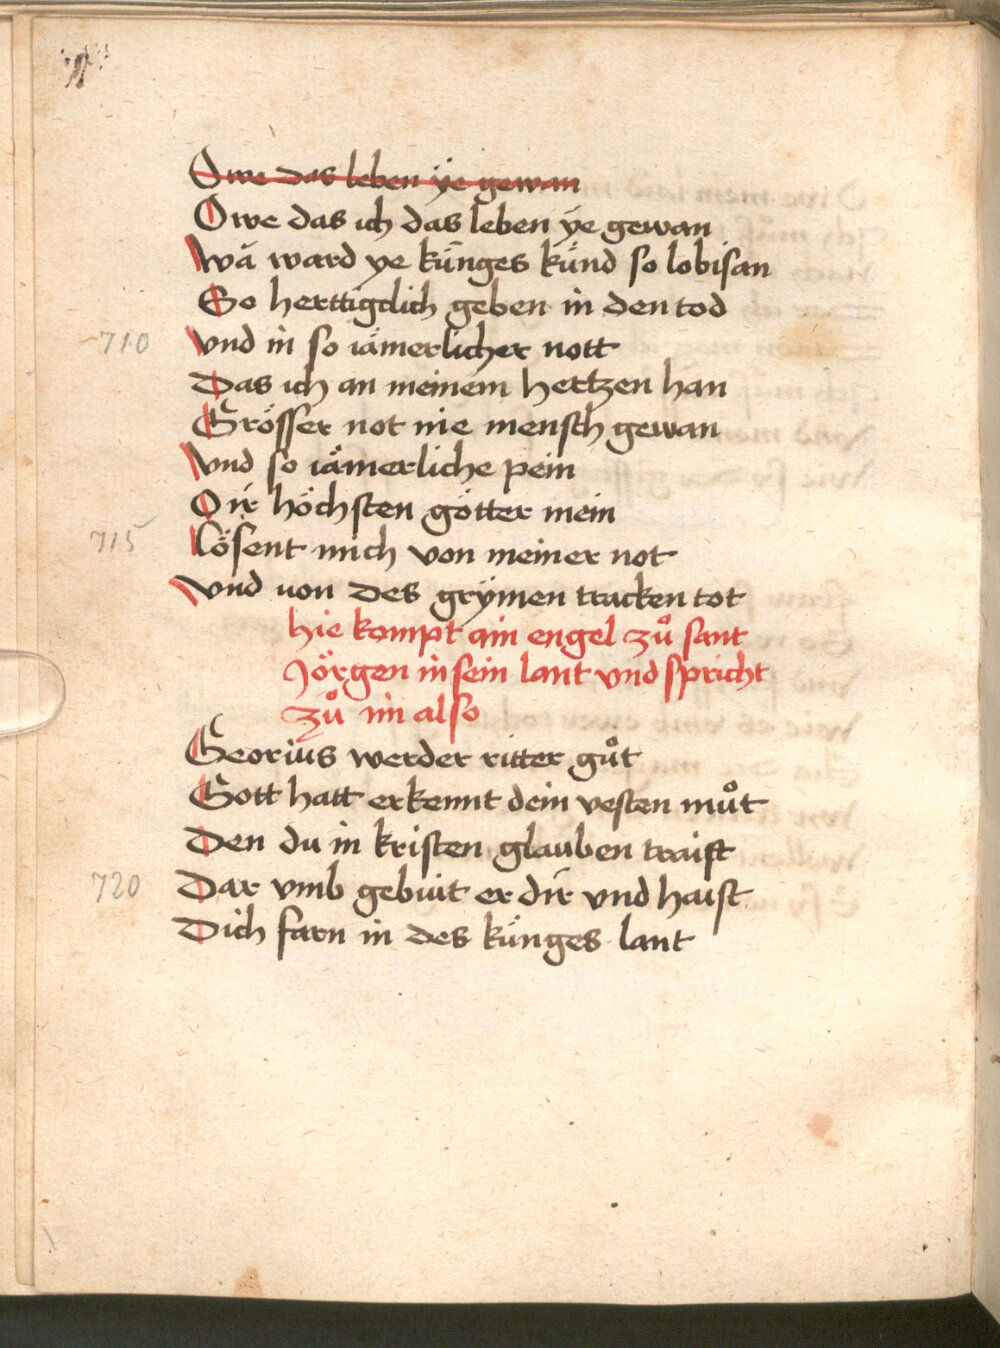 Owe das leben ÿe gewan
Owe das ich das leben ÿe gewan
Wā ward ye kúnges kúnd so lobisan
So herttigclich geben in den tod
710 Vnd in so iämerlicher nott
Das ich an meinem hertzen han
Grösser not nie mensch gewan
Vnd so iämerliche pein
O ir höchsten götter mein
715 Lösent mich von meiner not
Vnd uon des grÿmen tracken tot
hie kompt ain engel zuͦ sant
Jörgen in sein lant vnd spricht
zuͦ im also
Georius werder ritter guͦt
Gott hatt erkennt dein vesten muͦt
Den du in kristen glauben traist
720 Dar vmb gebiut er dir vnd haist
Dich farn in des kúnges lant